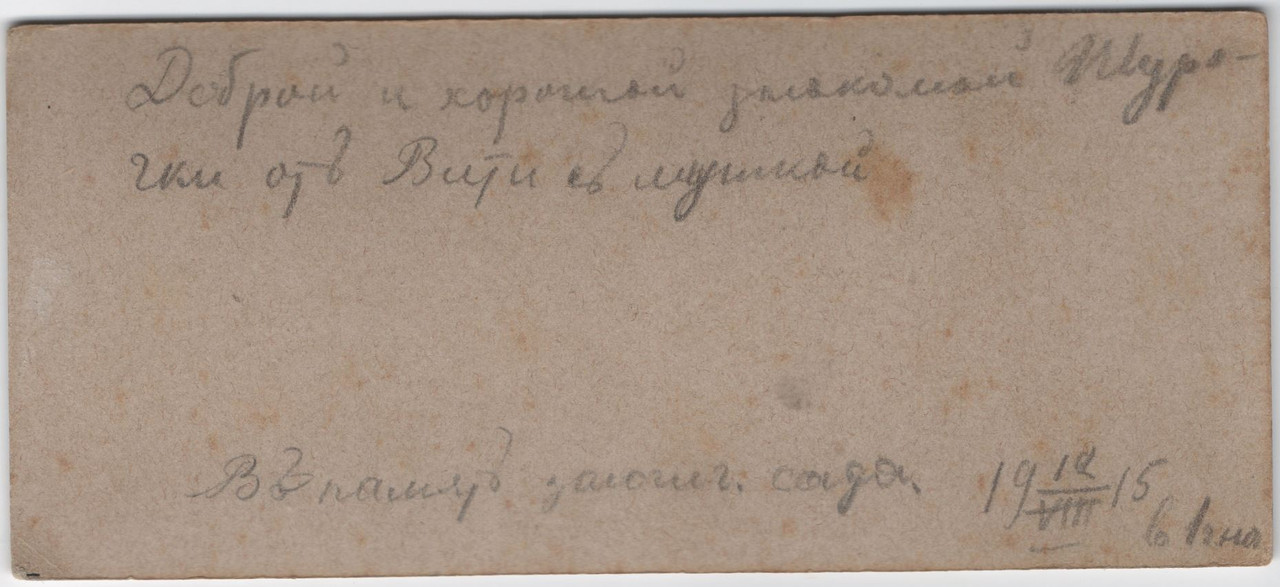 Доброй и хорошей знакомой Шуро-
чки отъ Вити съ мушкой
Въ память зоологич. сада. 19 18/VIII 15